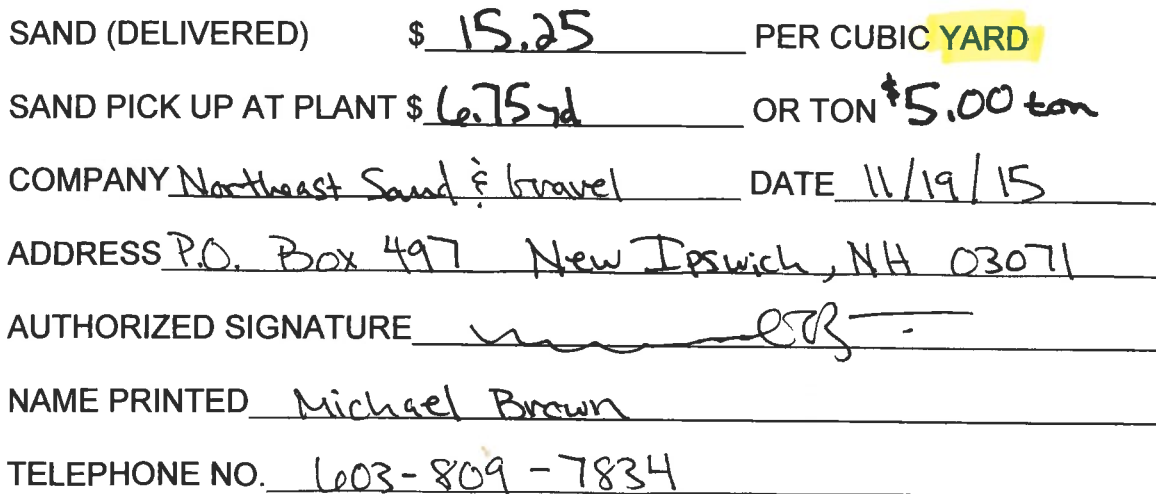 SAND (DELIVERED) $ 15.25 PER CUBIC YARD
SAND PICK UP AT PLANT $ 6.75 yd OR TON $5.00 ton
COMPANY Northeast Sand & Gravel DATE 11/19/15
ADDRESS P.O. Box 497 New Ipswich, NH 03071
AUTHORIZED SIGNATURE
NAME PRINTED Michael Brown
TELEPHONE NO. 603-809-7834